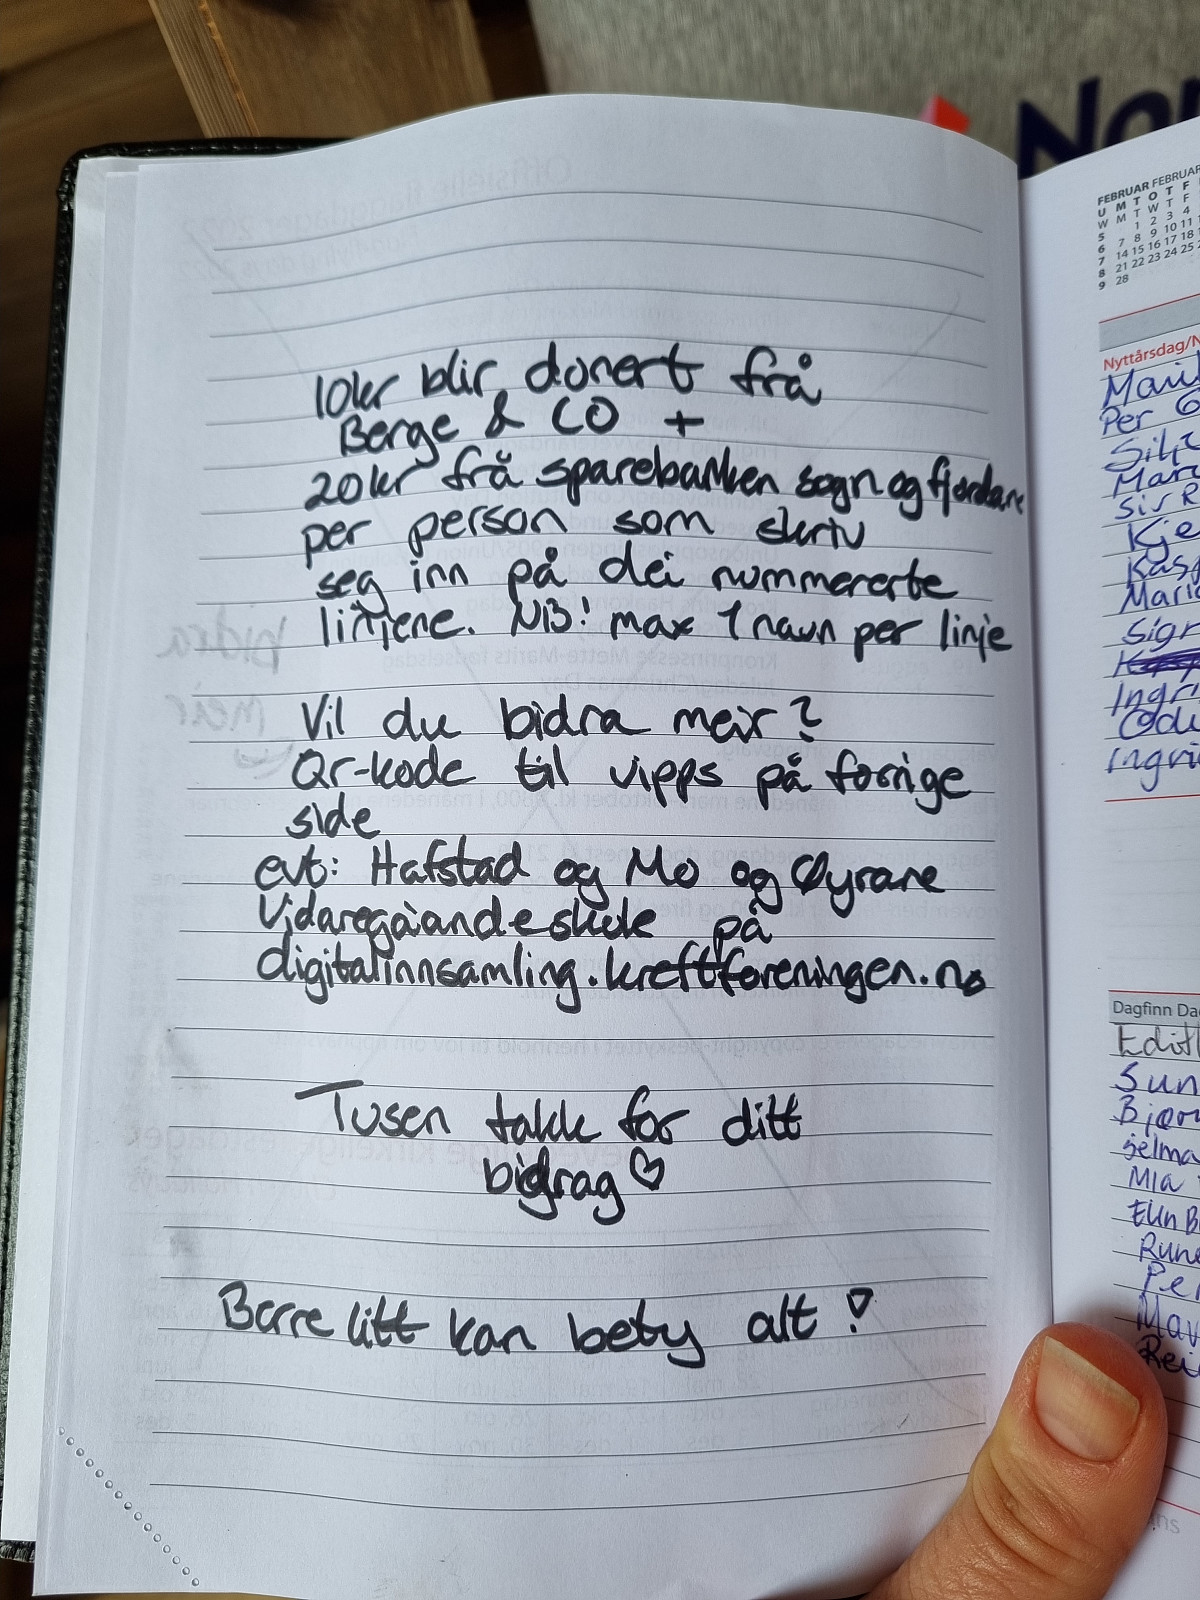 10kr blir donert frå
Berge & CO +
20kr frå sparebanken sogn og fjordane
per person som skriv
seg inn på dei nummererte
linjene. NB! max 1 navn per linje
Vil du bidra meir?
Qr-kode til vipps på forrige
side
evt: Hafstad og Mo og Øyrane
Vidaregåande skule på
digitalinnsamling.kreftforeningen.no
Tusen takk for ditt
bidrag ♡
Barre litt kan bety alt!
FEBRUAR FEBRUAR
U M T O T F
W M T W T F
5 1 2 3 4
6 7 8 9 10 11
7 14 15 16 17 18
8 21 22 23 24 25
9 28
Nyttårsdag/N
Per
Ingri
Odd
Ingri
Dagfinn Da
Edit
Sun
Bjør
Selma
Mia
Elin B
Rune
Per